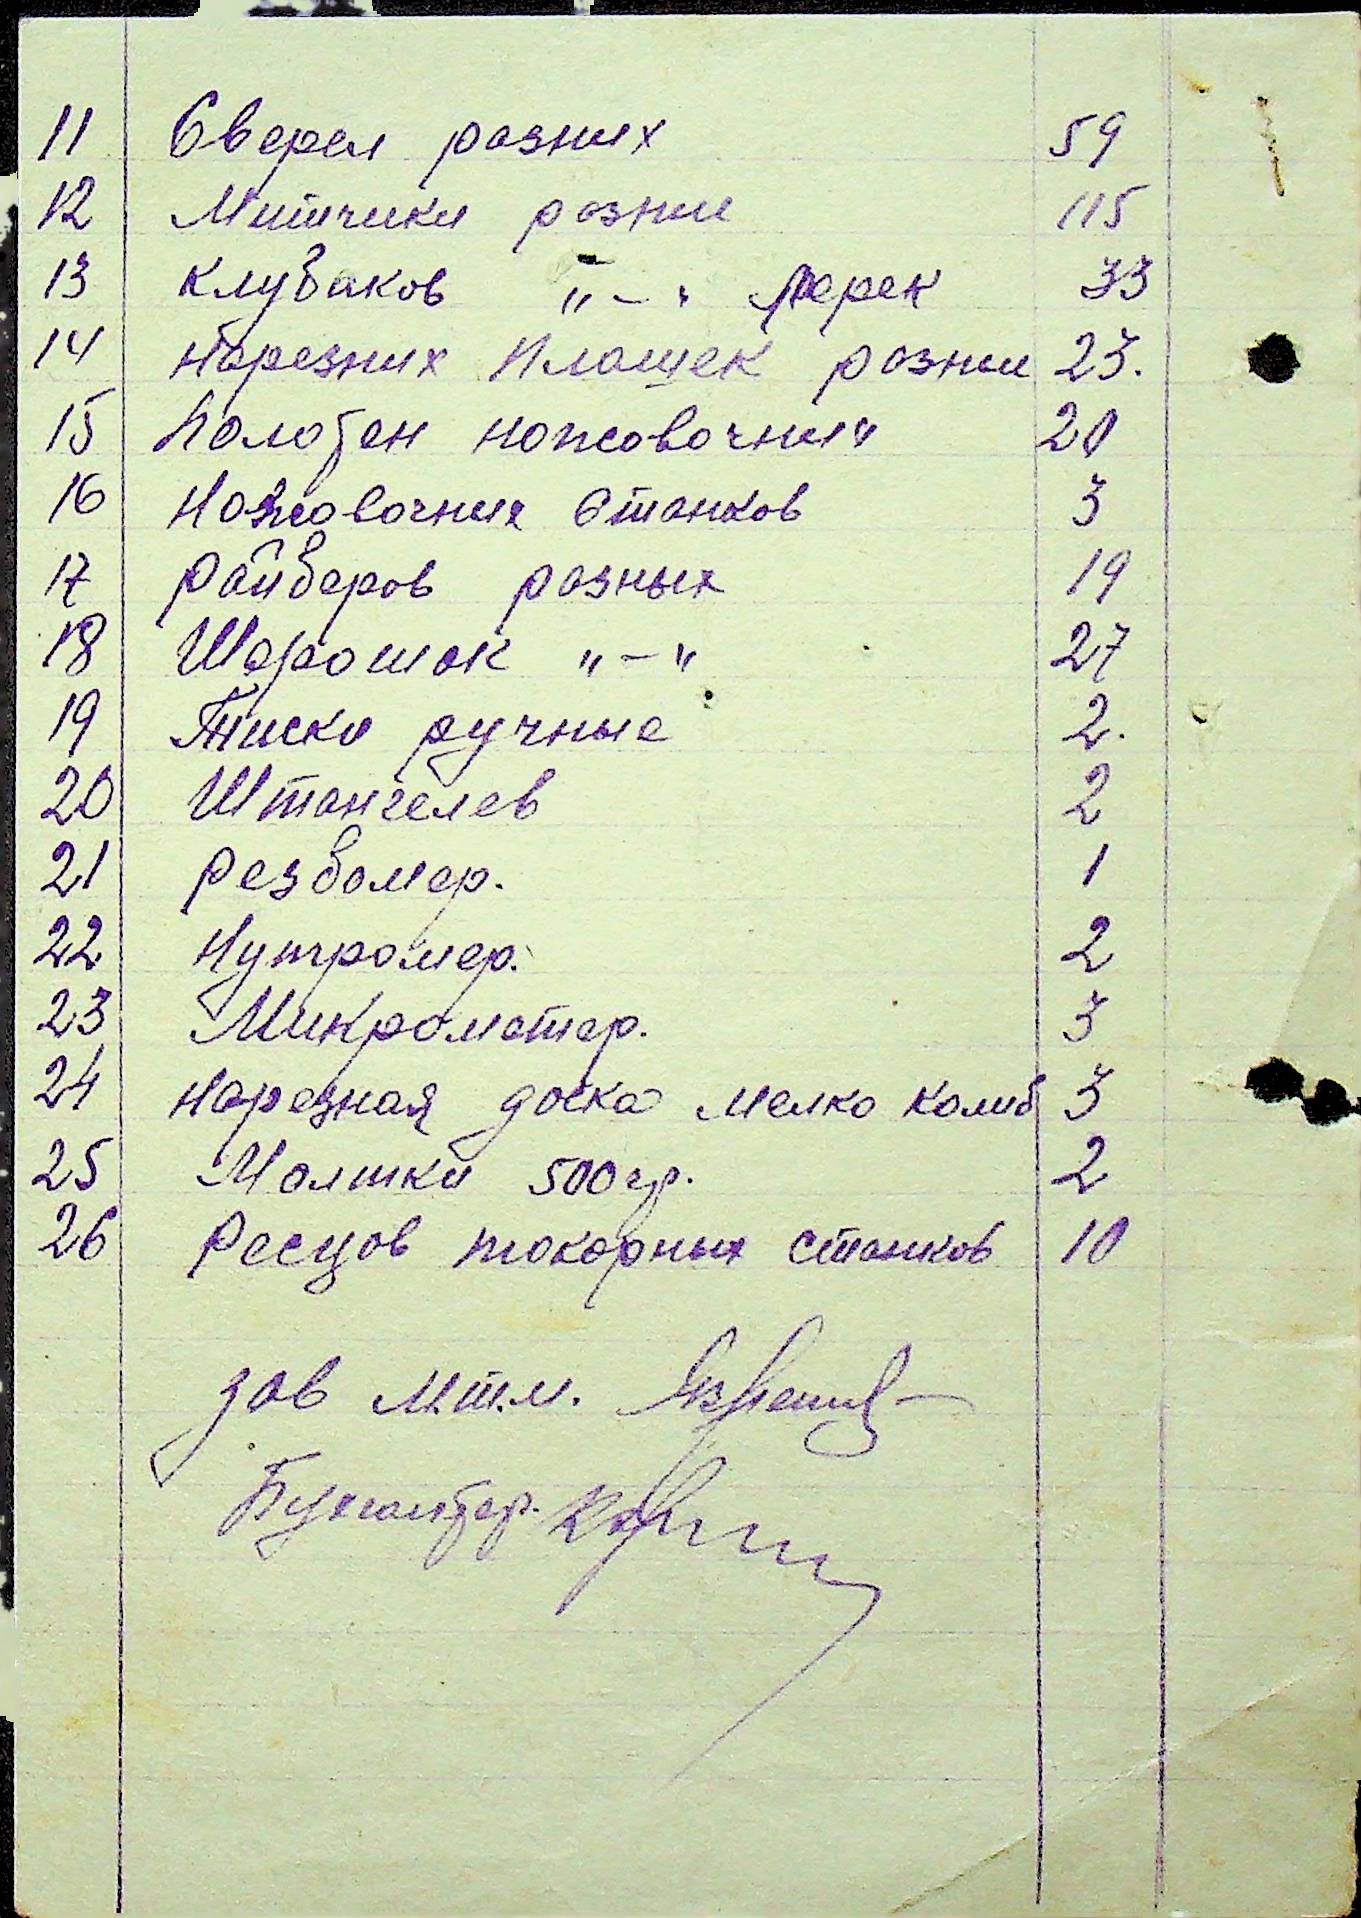 11 Сверел разних 59
12 Митчики разни 115
13 Клубаков "-" Мерек 33
14 Нарезних Плашек разни 23.
15 Полотен ножовочни" 20
16 Ножовочних Станков 3
17 Райберов разных 19
18 Шарошок "-" 27
19 Тиски ручные 2.
20 Штангелев 2
21 Резбомер. 1
22 Нутромер. 2
23 Микрометер. 3
24 Нарезная доска мелко калиб 3
25 Малтки 500 гр. 2
26 Ресцов токарных станков 10
Зав М.т.м.
Бухгалтер.